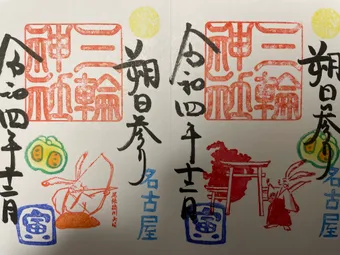 朔日参り
三輪神社
令和四年十二月
名古屋
寅
朔日参り
三輪神社
令和四年十二月
名古屋
寅